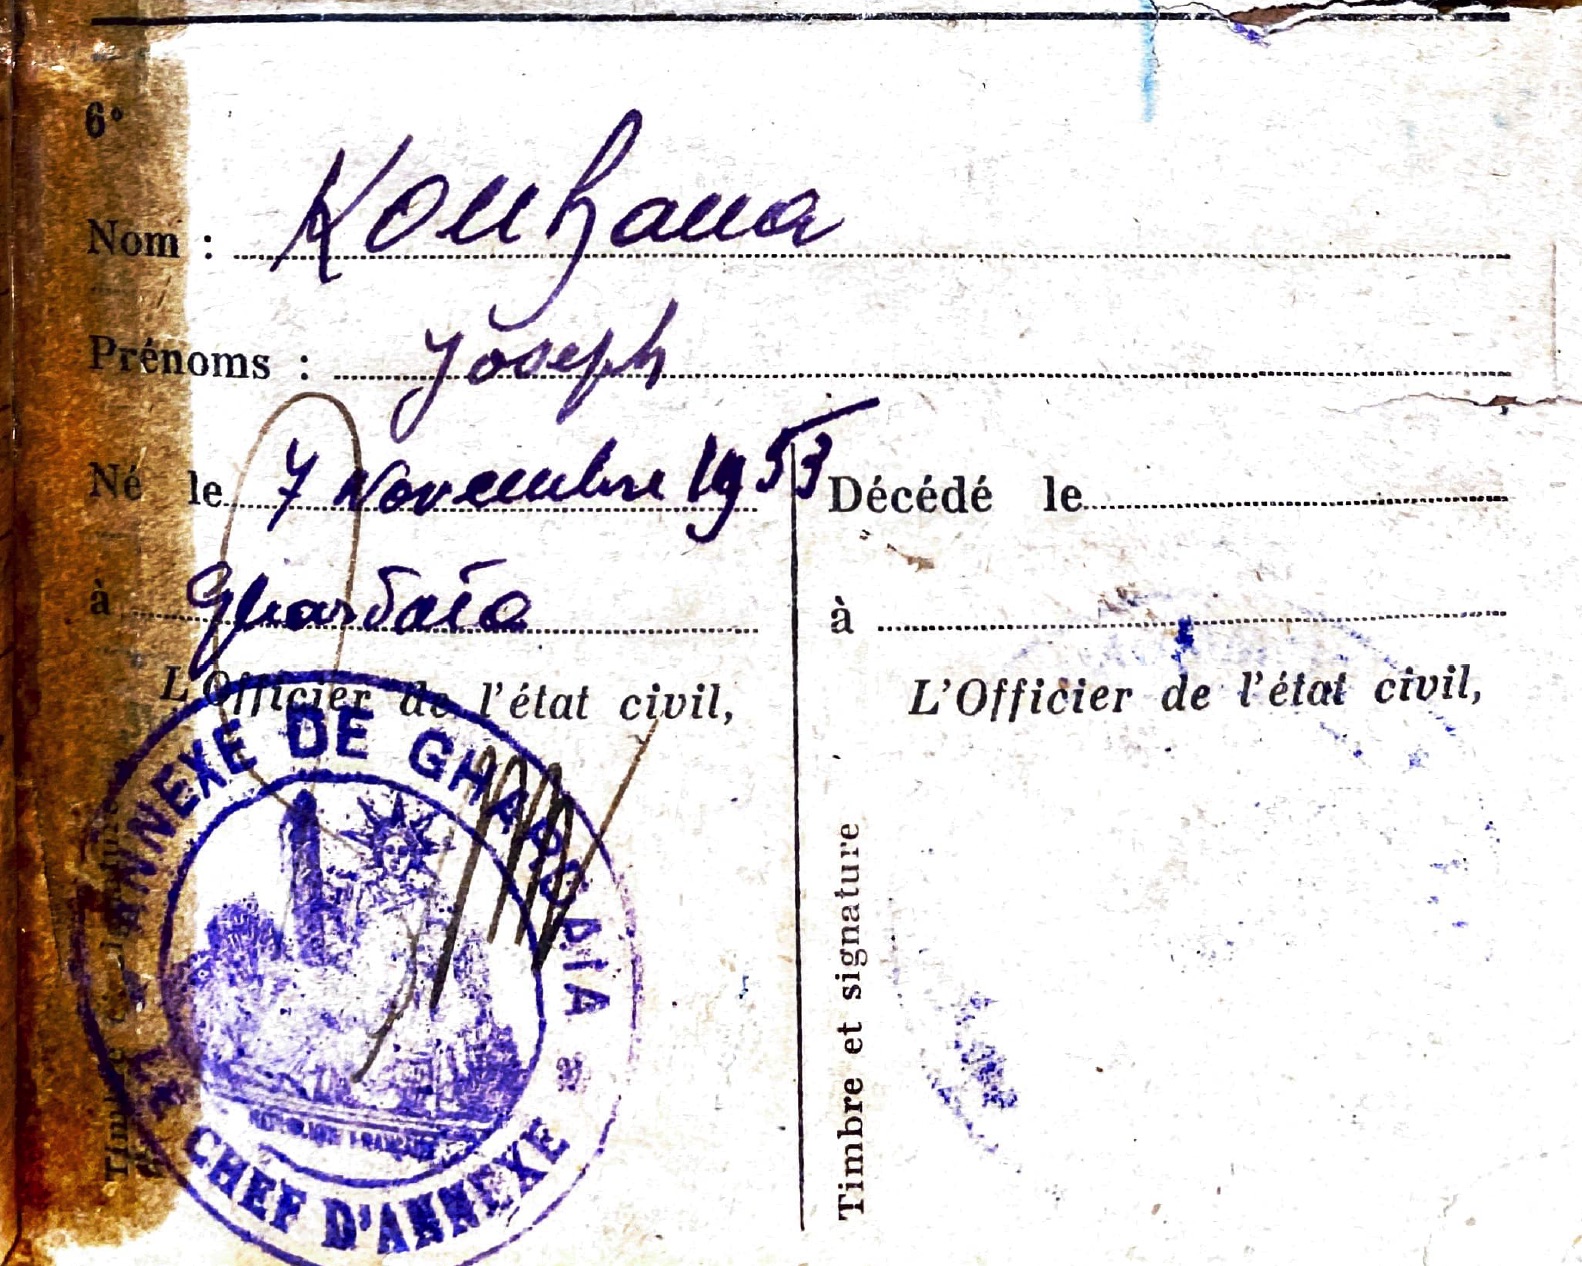 6°
Nom : Kouhana
Prénoms : Joseph
Né le 7 Novembre 1953
à Ghardaïa
L'Officier de l'état civil,
ANNEXE DE GHARDAIA
RÉPUBLIQUE FRANÇAISE
CHEF D'ANNEXE
Décédé le
à
L'Officier de l'état civil,
Timbre et signature